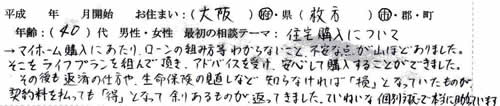 平成　年　月開始　お住まい：(大阪)府・県(枚方)市・郡・町
年齢：(40)代　男性・女性　最初の相談テーマ：住宅購入について
→マイホーム購入にあたり、ローンの組み方等わからないこと、不安な点が山ほどありました。
そこをライフプランを組んで頂き、アドバイスを受け、安心して購入することができました。
その後も返済の仕方や、生命保険の見直しなど知らなければ「損」となっていたものが、
契約料を払っても「得」となって余りあるものが返ってきました。ていねいな個別対応で本当に助かっています